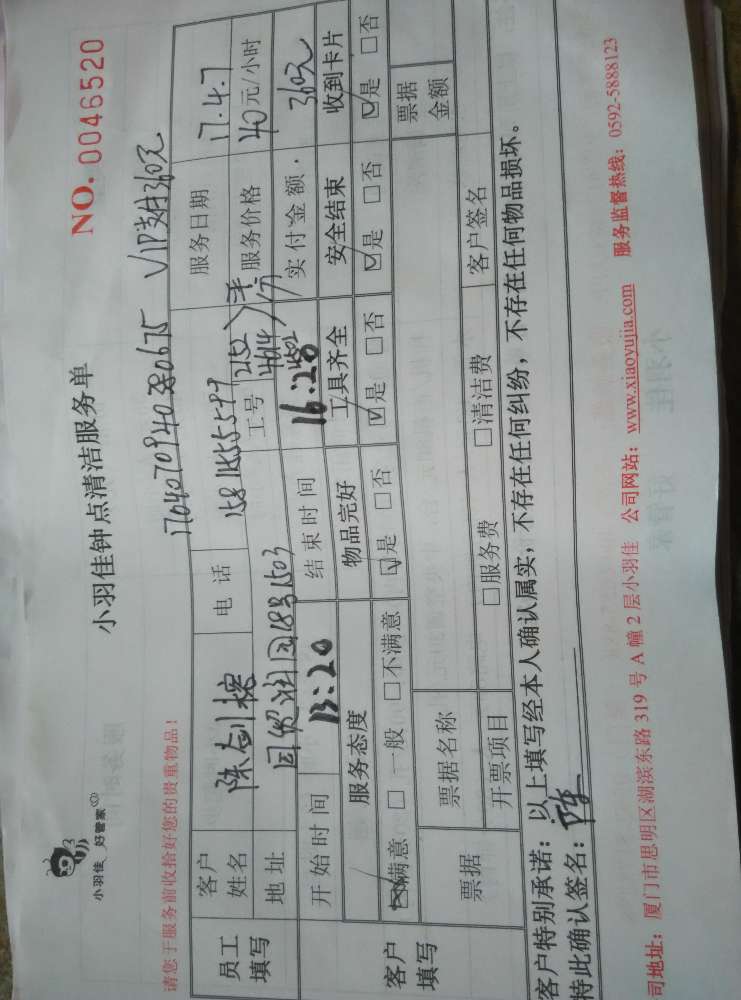 小羽佳 好管家
小羽佳钟点清洁服务单
NO. 0046520
请您于服务前收拾好您的贵重物品！
VIP 360元
员工填写
客户姓名
电话
服务日期 17.4.7
地址
工号
服务价格 40元/小时
客户填写
开始时间 13:20
结束时间 16:20
实付金额 360元
服务态度
物品完好
工具齐全
安全结束
收到卡片
满意 □一般 □不满意
是 □否
是 □否
是 □否
是 □否
是 □否
票据
票据名称
票据金额
开票项目
□服务费
□清洁费
客户签名
客户特别承诺：以上填写经本人确认属实，不存在任何纠纷，不存在任何物品损坏。
特此确认签名：陈
司地址：厦门市思明区湖滨东路 319 号 A 幢 2 层小羽佳 公司网站：www.xiaoyujia.com 服务监督热线：0592-5888123